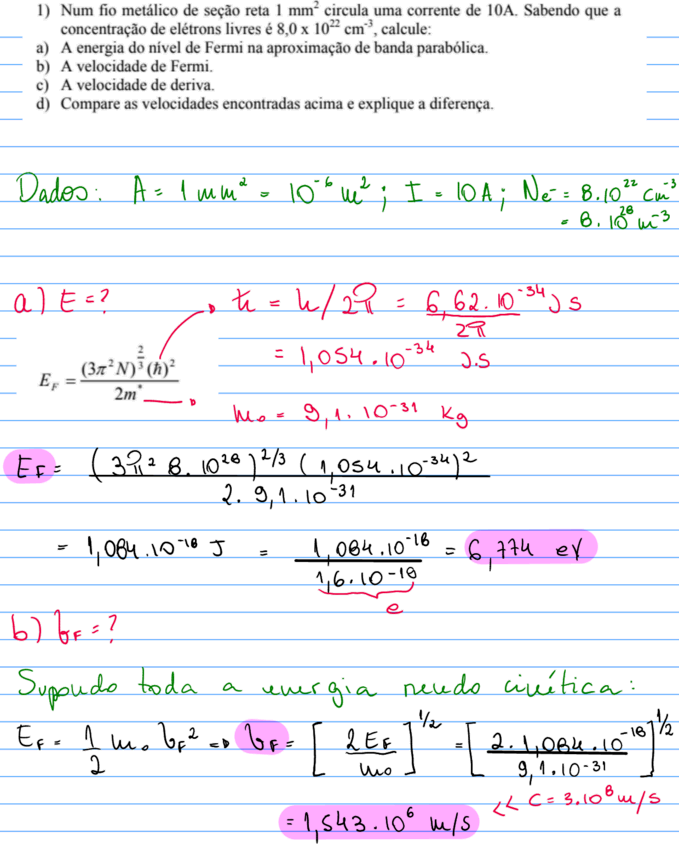 1) Num fio metálico de seção reta 1 mm² circula uma corrente de 10A. Sabendo que a
concentração de elétrons livres é 8,0 x 10²² cm⁻³, calcule:
a) A energia do nível de Fermi na aproximação de banda parabólica.
b) A velocidade de Fermi.
c) A velocidade de deriva.
d) Compare as velocidades encontradas acima e explique a diferença.
Dados: A = 1 mm² = 10⁻⁶ m² ; I = 10A ; Ne⁻ = 8.10²² cm⁻³
= 8.10²⁸ m⁻³
a) E = ? ħ = h/2π = 6,62.10⁻³⁴ J s / 2π
= 1,054.10⁻³⁴ J.s
E_F = (3π²N)^(2/3) (ħ)² / 2m*
m₀ = 9,1.10⁻³¹ kg
E_F = (3π² 8.10²⁸)^(2/3) (1,054.10⁻³⁴)² / 2. 9,1.10⁻³¹
= 1,084.10⁻¹⁸ J = 1,084.10⁻¹⁸ / 1,6.10⁻¹⁹ = 6,774 eV
e
b) v_F = ?
Supondo toda a energia sendo cinética:
E_F = 1/2 m₀ v_F² => v_F = [2E_F / m₀]^(1/2) = [2. 1,084.10⁻¹⁸ / 9,1.10⁻³¹]^(1/2)
= 1,543.10⁶ m/s << C = 3.10⁸ m/s